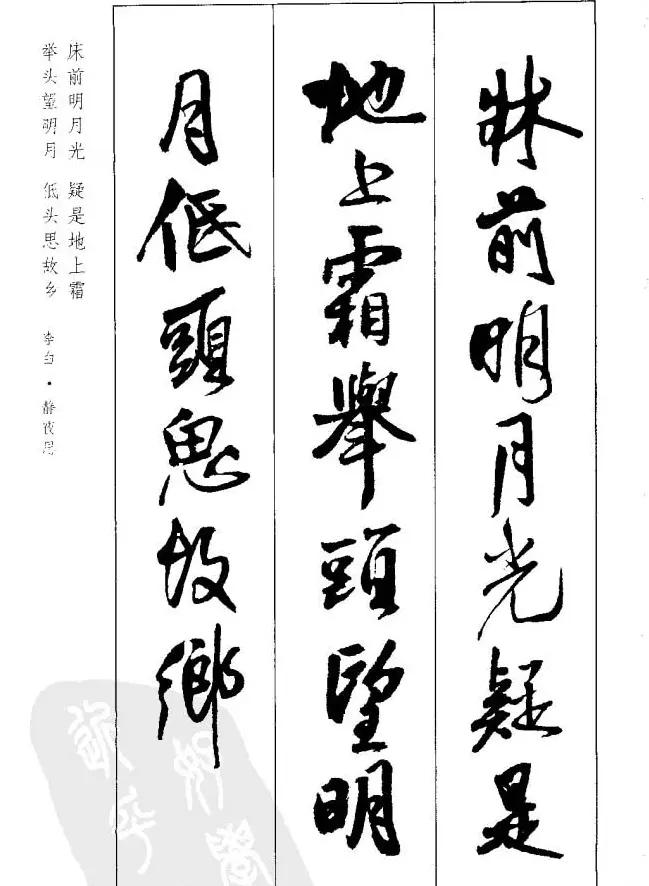 牀前明月光疑是
地上霜舉頭望明
月低頭思故鄉
床前明月光 疑是地上霜
举头望明月 低头思故乡 李白·静夜思